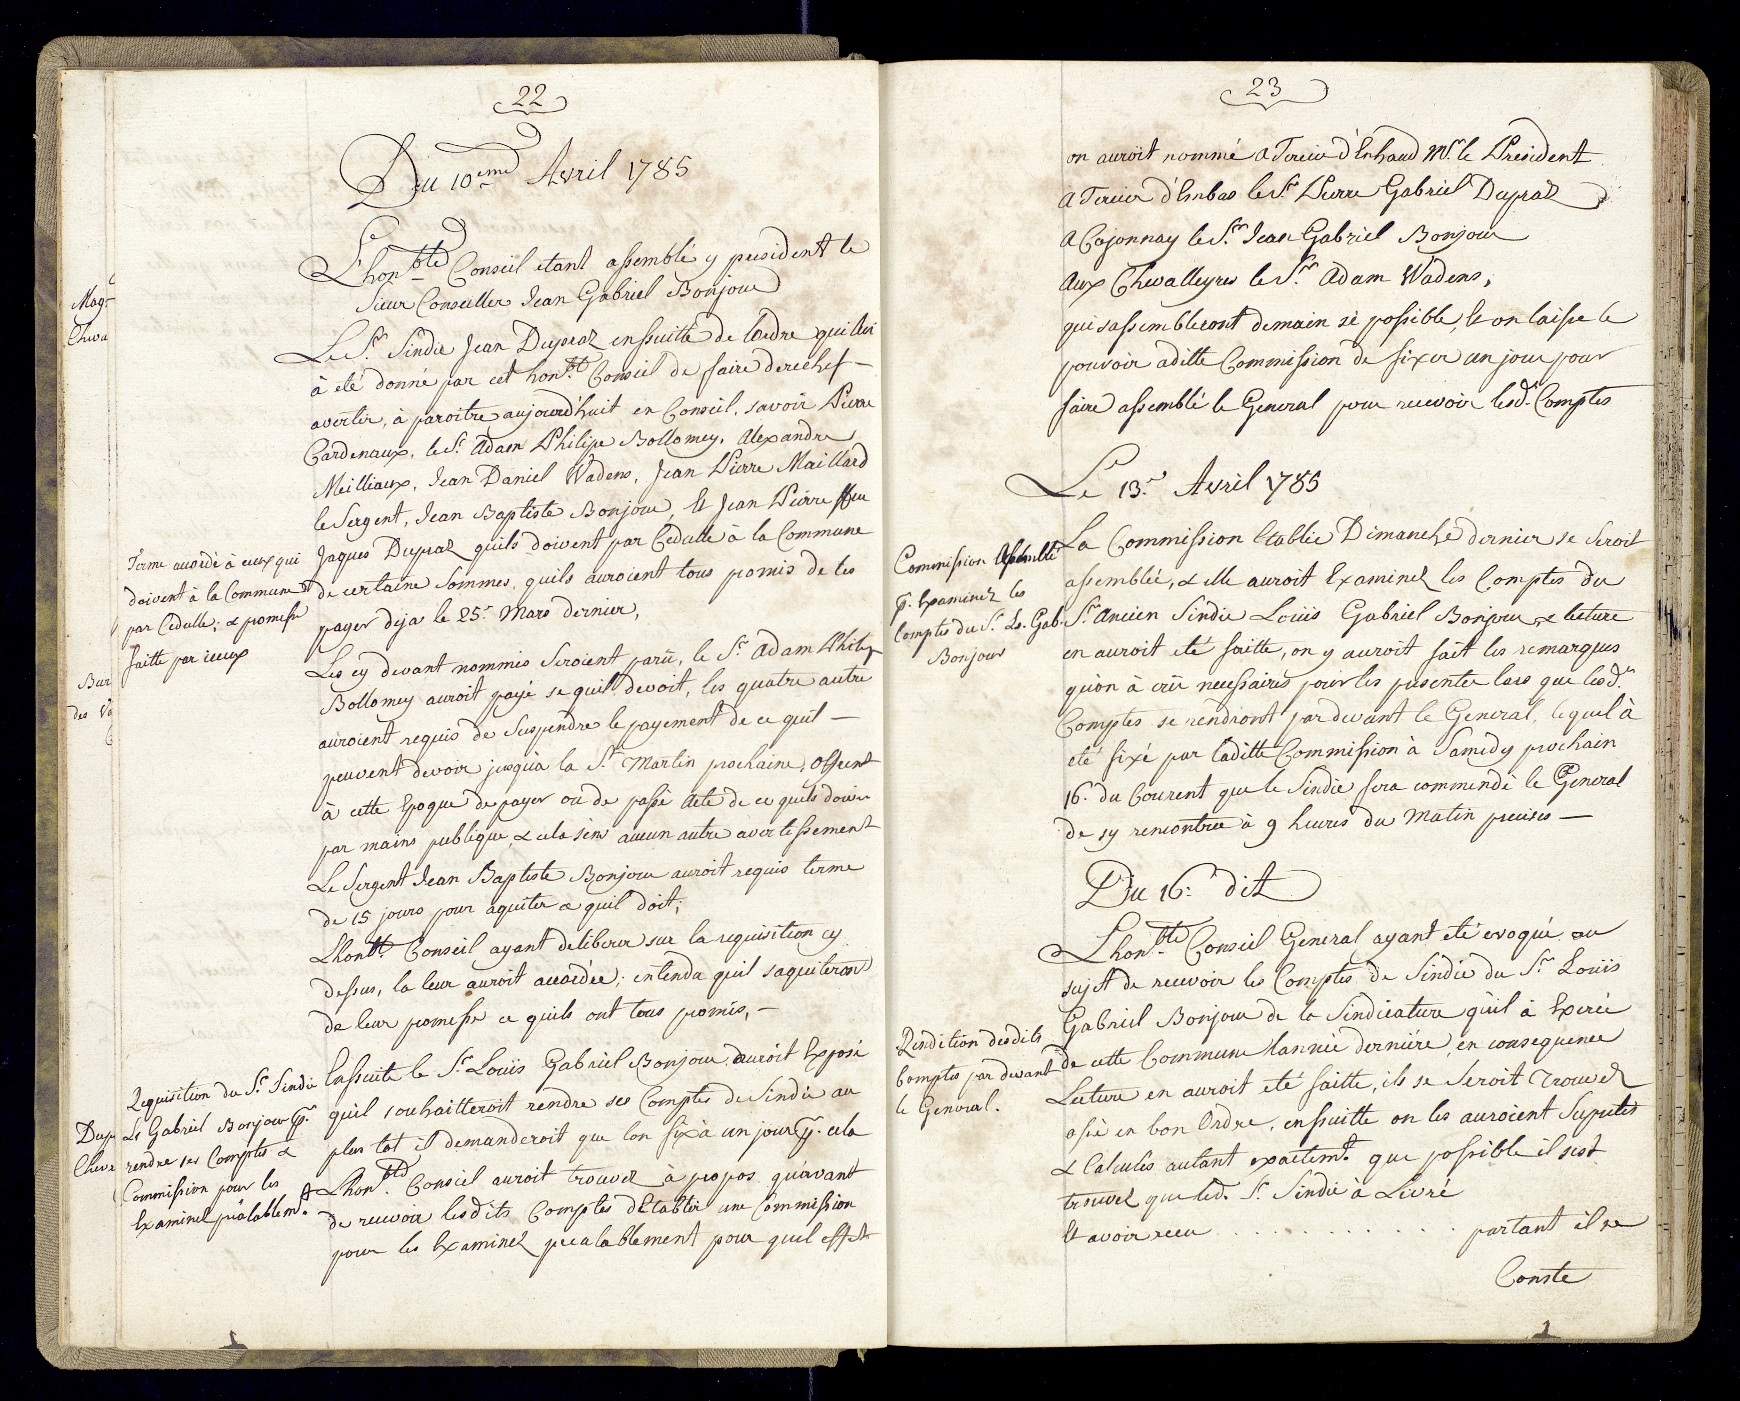 22
Du 10eme Avril 1785
L'honble Conseil etant assemblé y president le
Sieur Conseiller Jean Gabriel Bonjour
Le Sr. Sindic Jean Dupraz ensuitte de l'ordre qui lui
à eté donné par cet honble Conseil de faire derechef —
avertir, à paroitre aujourd'huit en Conseil, savoir Pierre
Cardenaux, le Sr. Adam Philipe Bollomey, Alexandre
Meilliaux, Jean Daniel Wadens, Jean Pierre Maillard
le Sergent, Jean Baptiste Bonjour, & Jean Pierre ffeu
Jaques Dupraz quils doivent par Cedulle à la Commune
de certaine Sommes, quils auroient tous promis de les
payer deja le 25e. Mars dernier,
Terme accordé à ceux qui
doivent à la Commune
par Cedulle; & promesse
faitte par iceux
Les cy devant nommés Seroient parû, le Sr. Adam Philipe
Bollomey auroit payé se quil devoit, les quatre autre
auroient requis de Suspendre le payement de ce quil —
peuvent devoir jusqu'à la St. Martin prochaine, Offrent
à cette Epoque de payer ou de passé Acte de ce quils doiv
par mains publique, & cela sens aucun autre avertissement
Le Sergent Jean Baptiste Bonjour auroit requis terme
de 15 jours pour aquiter ce quil doit;
L'honble Conseil ayant deliberer sur la requisition cy
dessus, la leur auroit accordée; entendu quil saquiteron
de leur promesse ce quils ont tous promis, —
Requisition du Sr. Sindic
Ls Gabriel Bonjour pr.
rendre ses Comptes &
Commission pour les
Examinez préalablemt.
Ensuitte le Sr. Louïs Gabriel Bonjour auroit Exposé
quil souhaitteroit rendre ses Comptes de Sindic au
plus tot il demanderoit que lon fixà un jour pr. cela
L'honble. Conseil auroit trouvez à propos quavant
de recevoir lesdits Comptes d'Etablir une Commission
pour les Examinez preàlablement pour quil effet
23
on auroit nommé a Terier d'Enhaud Mr. le President
a Tercier d'Embas le Sr. Pierre Gabriel Dupraz
a Cojonnay le Sr. Jean Gabriel Bonjour
Aux Chevalleyres le Sr. Adam Wadens,
qui sassembleront demain sè possible, & on laisse le
pouvoir aditte Commission de fixer un jour pour
faire assemblé le General pour recevoir lesd. Comptes
Le 13e. Avril 1785
Commission Assemblée
pr. Examinez les
Comptes du Sr. Ls. Gab.
Bonjour
La Commission Etablie Dimanche dernier se Seroit
assemblée, & elle auroit Examinez les Comptes du
Sr. Ancien Sindic Louïs Gabriel Bonjour, & lecture
en auroit eté faitte, on y auroit fait les remarques
quon à crû necessaires pour les presenter lors que lesd.
Comptes se rendront par devant le General, lequel à
eté fixé par laditte Commission à Samedy prochain
16. du Courent que le Sindic fera commendé le General
de sy rencontrer à 9 heures du Matin precises —
Du 16e. dit
L'honble Conseil General ayant eté evoqué au
sujet de recevoir les Comptes de Sindic du Sr. Louïs
Gabriel Bonjour de la Sindicature quil à Exercé
de cette Commune lannée derniére, en consequence
Lecture en auroit eté faitte, ils se Seroit Trouvez
assé en bon Ordre, ensuitte on les auroient Suputés
& Calculés autant exactemt. que possible il sest
trouvez que led. Sr. Sindic à Livré
Et avoir recu . . . . . . . . . . partant il se
Conste
Rendition desdits
Comptes par devant
le General.